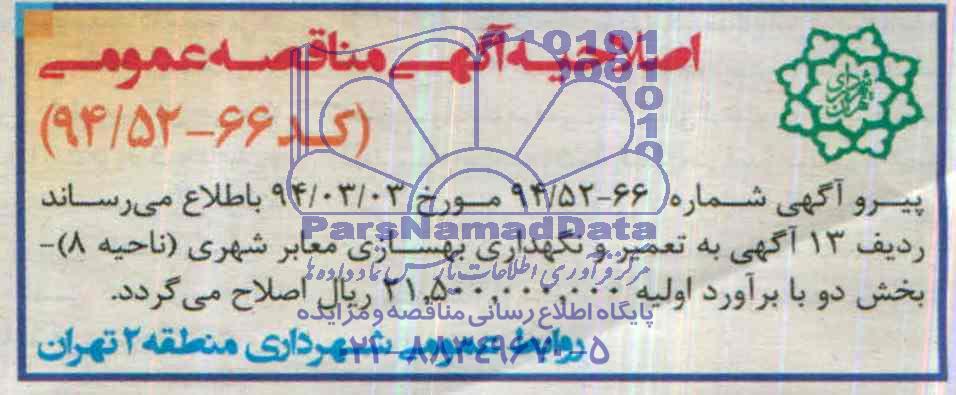 اصلاحیه آگهی مناقصه عمومی
(کد ۶۶-۹۴/۵۲)
شهرداری تهران
پیرو آگهی شماره ۶۶-۹۴/۵۲ مورخ ۹۴/۰۳/۰۳ باطلاع می‌رساند
ردیف ۱۳ آگهی به تعمیر و نگهداری بهسازی معابر شهری (ناحیه ۸)-
بخش دو با برآورد اولیه ۲۱,۵۰۰,۰۰۰,۰۰۰ ریال اصلاح می‌گردد.
روابط عمومی شهرداری منطقه ۲ تهران
ParsNamadData
مرکز فرآوری اطلاعات پارس نماد داده ها
پایگاه اطلاع رسانی مناقصه و مزایده
۰۲۱-۸۸۳۴۹۶۷۰-۵